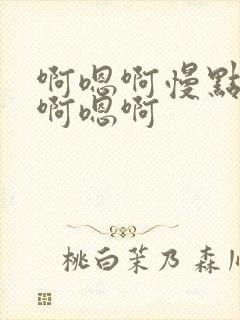 啊嗯啊慢點
啊嗯啊
桃白茉乃 森川